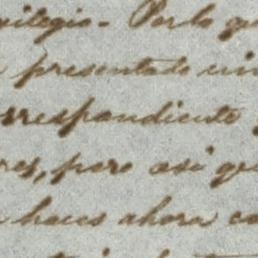 vilegio. Por lo qu
presentado un
rrespondiente
res, pero asi qu
haces ahora co